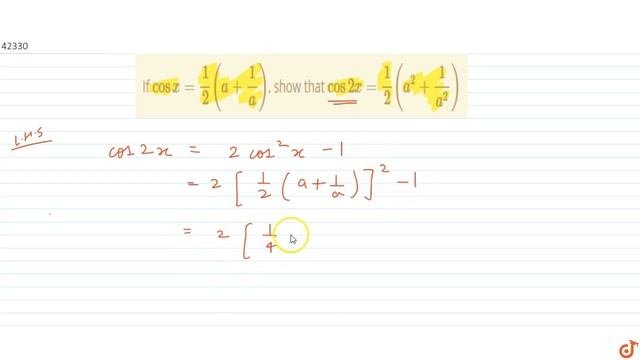 42330
If cos x = 1/2 (a + 1/a), show that cos 2x = 1/2 (a² + 1/a²)
L.H.S
cos 2x = 2 cos² x - 1
= 2 [ 1/2 ( a + 1/a ) ]² - 1
= 2 [ 1/4